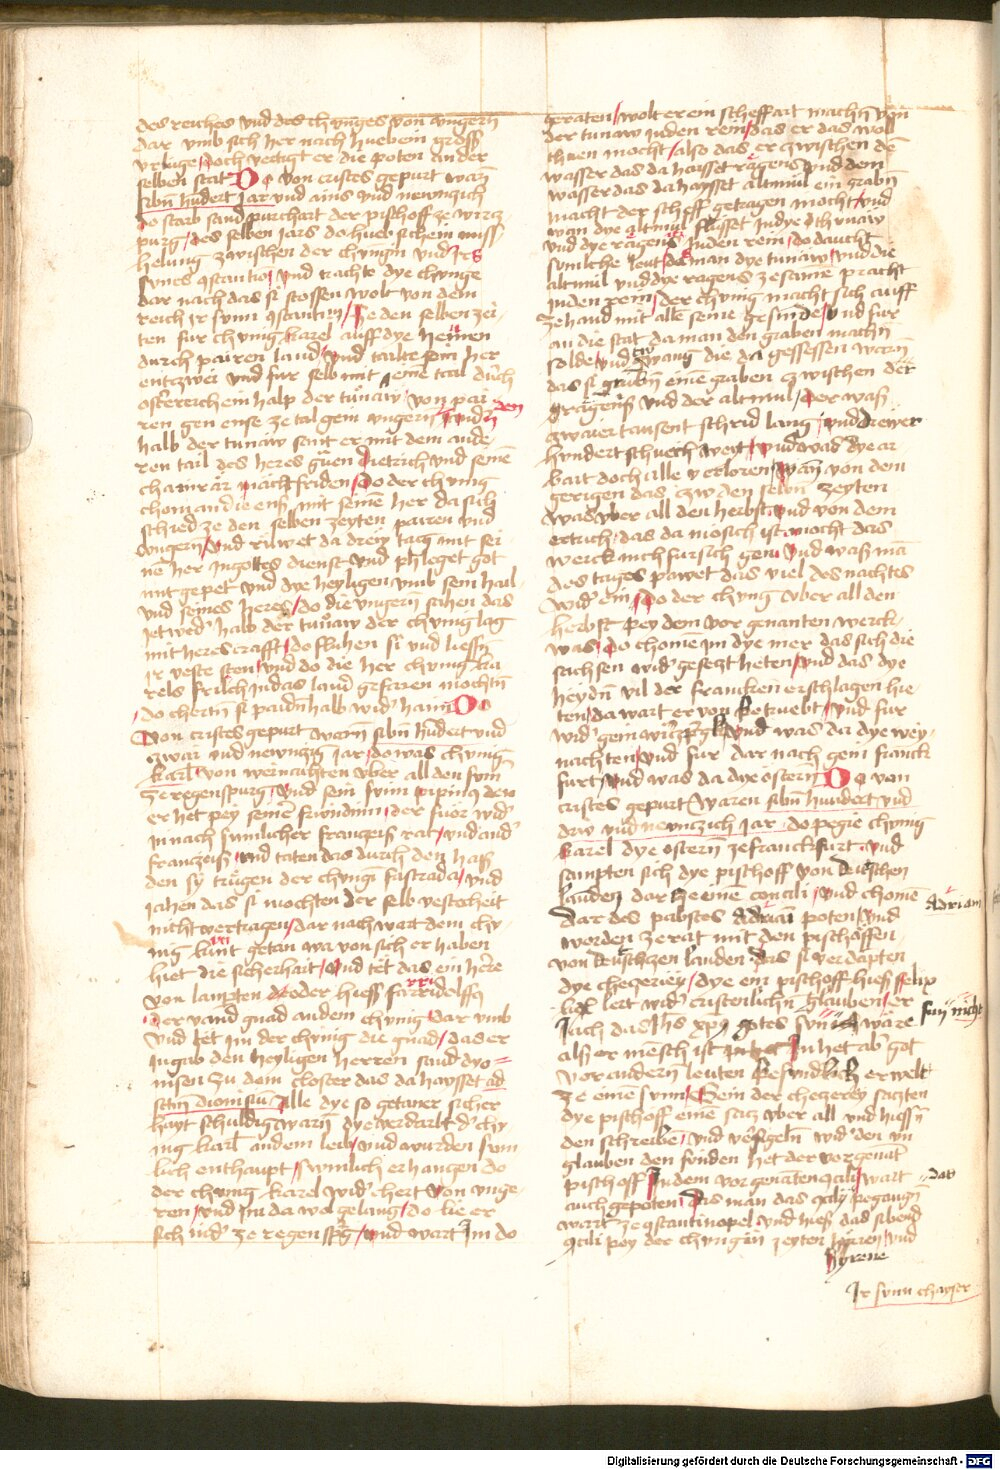 des reiches vnd des chuniges von vngern
dar vmb sich her nach hueb ein gross
vrliuge doch vertigt er die poten an der
selben stat Do von cristes gepurt warn
sibn hundert jar vnd ains vnd newnczich
do starb sand purchart der pischoff ze wircz
purg / des selben jars do hueb sich ein miss
helung zwischen der chungin vnd jrs
suns 9stantio / vnd tracht dye chunge
dar nach das si stossen wolt von dem
reich jr sunn 9stantin / Ze den selben zei
ten fur chunig karel auff dye hewnen
durch pairen land / vnd tailt sein her
entzwei vnd fur selb mit eine tail durch
osterreich ein halp der tunaw / von pai
ren gen ense ze tal gein vngern / vnd den
halb der tunaw sant er mit dem ande
ren tail des heres graven dietrich vnd seine
chamrar machtfriden / Do der chunig
chom an die ens mit seine her da sich
schied ze den selben zeyten pairen vnd
vngern / vnd ruwet da dreiy tag mit sei
ne her in gottes dienst vnd phleget got
mit gepet vnd dye heyligen vmb sein hail
vnd seines heres / do die vngern sahen das
jetwed halb der tunaw der chunig lag
mit heres crafft / do fluhen si vnd liessn
jr veste sten / vnd do die her chunig ka
rels frilch in das land gefaren mochtn
/ do chertn si paidnhalb wid haim Do
Von cristes gepurt warn sibn hundert vnd
zwai vnd newnzig jar / do was chunig
karl von weinachten vber all den sum
ze regenspurg / vnd sein sunn pipinq den
er het pey seiner friundinn / der fuor wid
in nach sumlicher franczeis rat / vnd and
franczeiss / vnd taten das durch den hass
den sy truogen der chungi fastrada / vnd
jahen das si mochten der selb vestecheit
nicht vertragen / dar nach wart dem chu
nig kunt getan wa von sich er haben
hiet die sicherhait / vnd tet das ein here
von lampten der hiess farridelffq
Der vand gnad an dem chunig / dar vmb
vnd tet jm der chunig die gnad / das er
jn gab den heyligen herren sand dyo
nisen zu dem closter das da haysset ad
sctm dionisiu / Alle dye so getaner sicher
hayt schuldig warn dye verdarbt d chu
nig karl an dem leib / vnd wurden sum
lich enthaupt / sumlich er hangen do
der chunig karel wid chert von vnge
ren / vnd jm da wol gelang / do lie er
sich nid ze regenspurg / vnd wart jm do
geraten / wolt er ein scheffart machn von
der tunaw in den rein / das er das woll
thuen mocht / also das er czwischen de
wasser das da haisset ragens vnd dem
wasser das da haysset altmul ein grabn
macht der scheff getragen mocht / vnd
wan dye altmul flusset in dye thunaw
vnd dye ragens in den rein / do daucht
sumliche leut / das man dye tunaw / vnd die
altmul vnd dye ragens zesame pracht
in den rein / der chunig macht sich auff
ze hand mit alle seine gesinde / vnd fur
an die stat da man den graben machn
solde / vnd twang die da gesessen warn
das si grubn eine graben czwischen der
ragens vnd der altmul / Der was
czwaier tausent schrid lang / vnd dreier
hundert schuech weyt / vnd was dye ar
bait doch alle verloren / wan von dem
gerigen das czw den selbn zeyten
was vber all den herbst vnd von dem
ertrich das da mosich ist mocht das
werck nich fursich gen / vnd was ma
des tages pawet das viel des nachtes
wid ein / Do der chunig vber all den
herbst pey dem vor genanten werck
was / Do chomen im dye mer das sich die
sachsen wid gesetzt heten / vnd das dye
heydn vil der francken erschlagen hie
ten / da wart er von betruebt / vnd fur
wid gein wirczpurgk / vnd was da dye wey
nachten / vnd fur dar nach gein franck
furt / vnd was da dye ostern Do von
cristes gepurt waren sibn hundert vnd
drw vnd newnczich jar / do pegie chunig
karel dye ostern ze franckfurt / vnd
sampten sich dye pischoff von deutschen
landen dar ze eine concili / vnd chome
dar des pabstes Adriani poten / vnd
Adriani
worden ze rat mit den pischoffen
von deutschen landen / das si verdapten
dye checzerey / dye ein pischoff hiess felix
lert wid cristenlichn glauben / er
jach das jhs xps gotes sun wäre
sun nicht
als er mensch ist in het ab got
vor andern leuten besundlich erwelt
ze eine sun / Sein der checzerey saczten
dye pischoff eine sacz vber all vnd hiessn
den schreiben / vnd versigeln wid den vn
glauben den funden het der vorgenat
pischoff / In dem vorgenaten 9cili wart
dar
auch gepoten / Das man das 9cily pegangn
wart ze 9stantinopel vnd hiess das sibend
9cili pey der chungin zeyten hyrein / vnd
Hyrene
jr sunn chayser
Digitalisierung gefördert durch die Deutsche Forschungsgemeinschaft - DFG